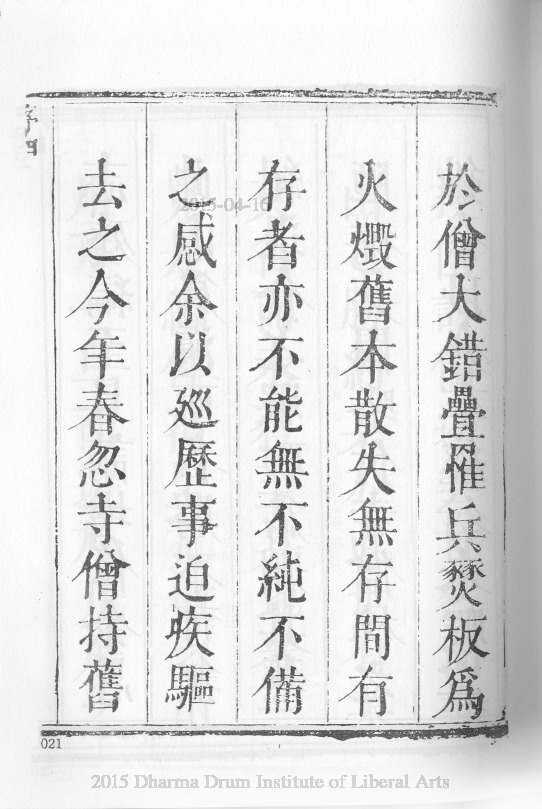 序四
於僧大錯疊罹兵燹板為
火燬舊本散失無存間有
存者亦不能無不純不備
之感余以廵歷事迫疾驅
去之今年春忽寺僧持舊
021
2015-04-16
2015 Dharma Drum Institute of Liberal Arts